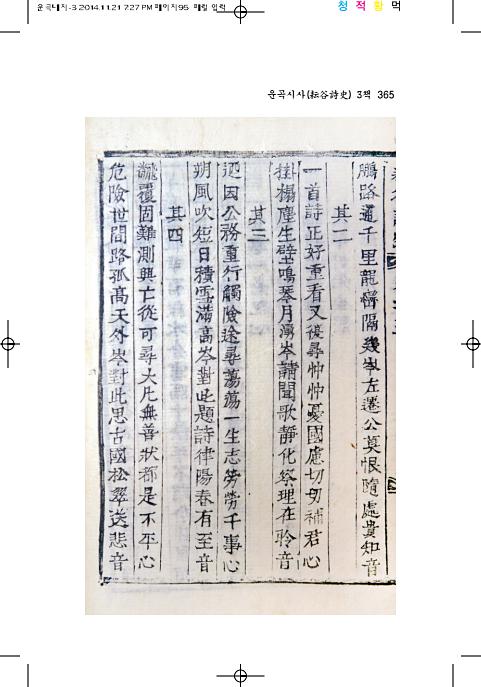 운곡내지-3 2014.11.21 7:27 PM 페이지95
청 적 황 먹
운곡시사(耘谷詩史) 3책 365
鵬路通千里龍 隔幾岑左遷公莫恨隨處貴知音
其二
一首詩正好重看又復尋忡忡憂國慮切切補君心
掛榻塵生壁鳴琴月滿岑請聞歌靜化祭理在聆音
其三
迺因公務重行觸險途尋蕩蕩一生志勞勞千事心
朔風吹短日積雪滿高岑對此題詩律陽春有至音
其四
飜覆固難測興亡從可尋大凡無善狀都是不平心
危險世間路孤高天外岑對此思古國松翠送悲音